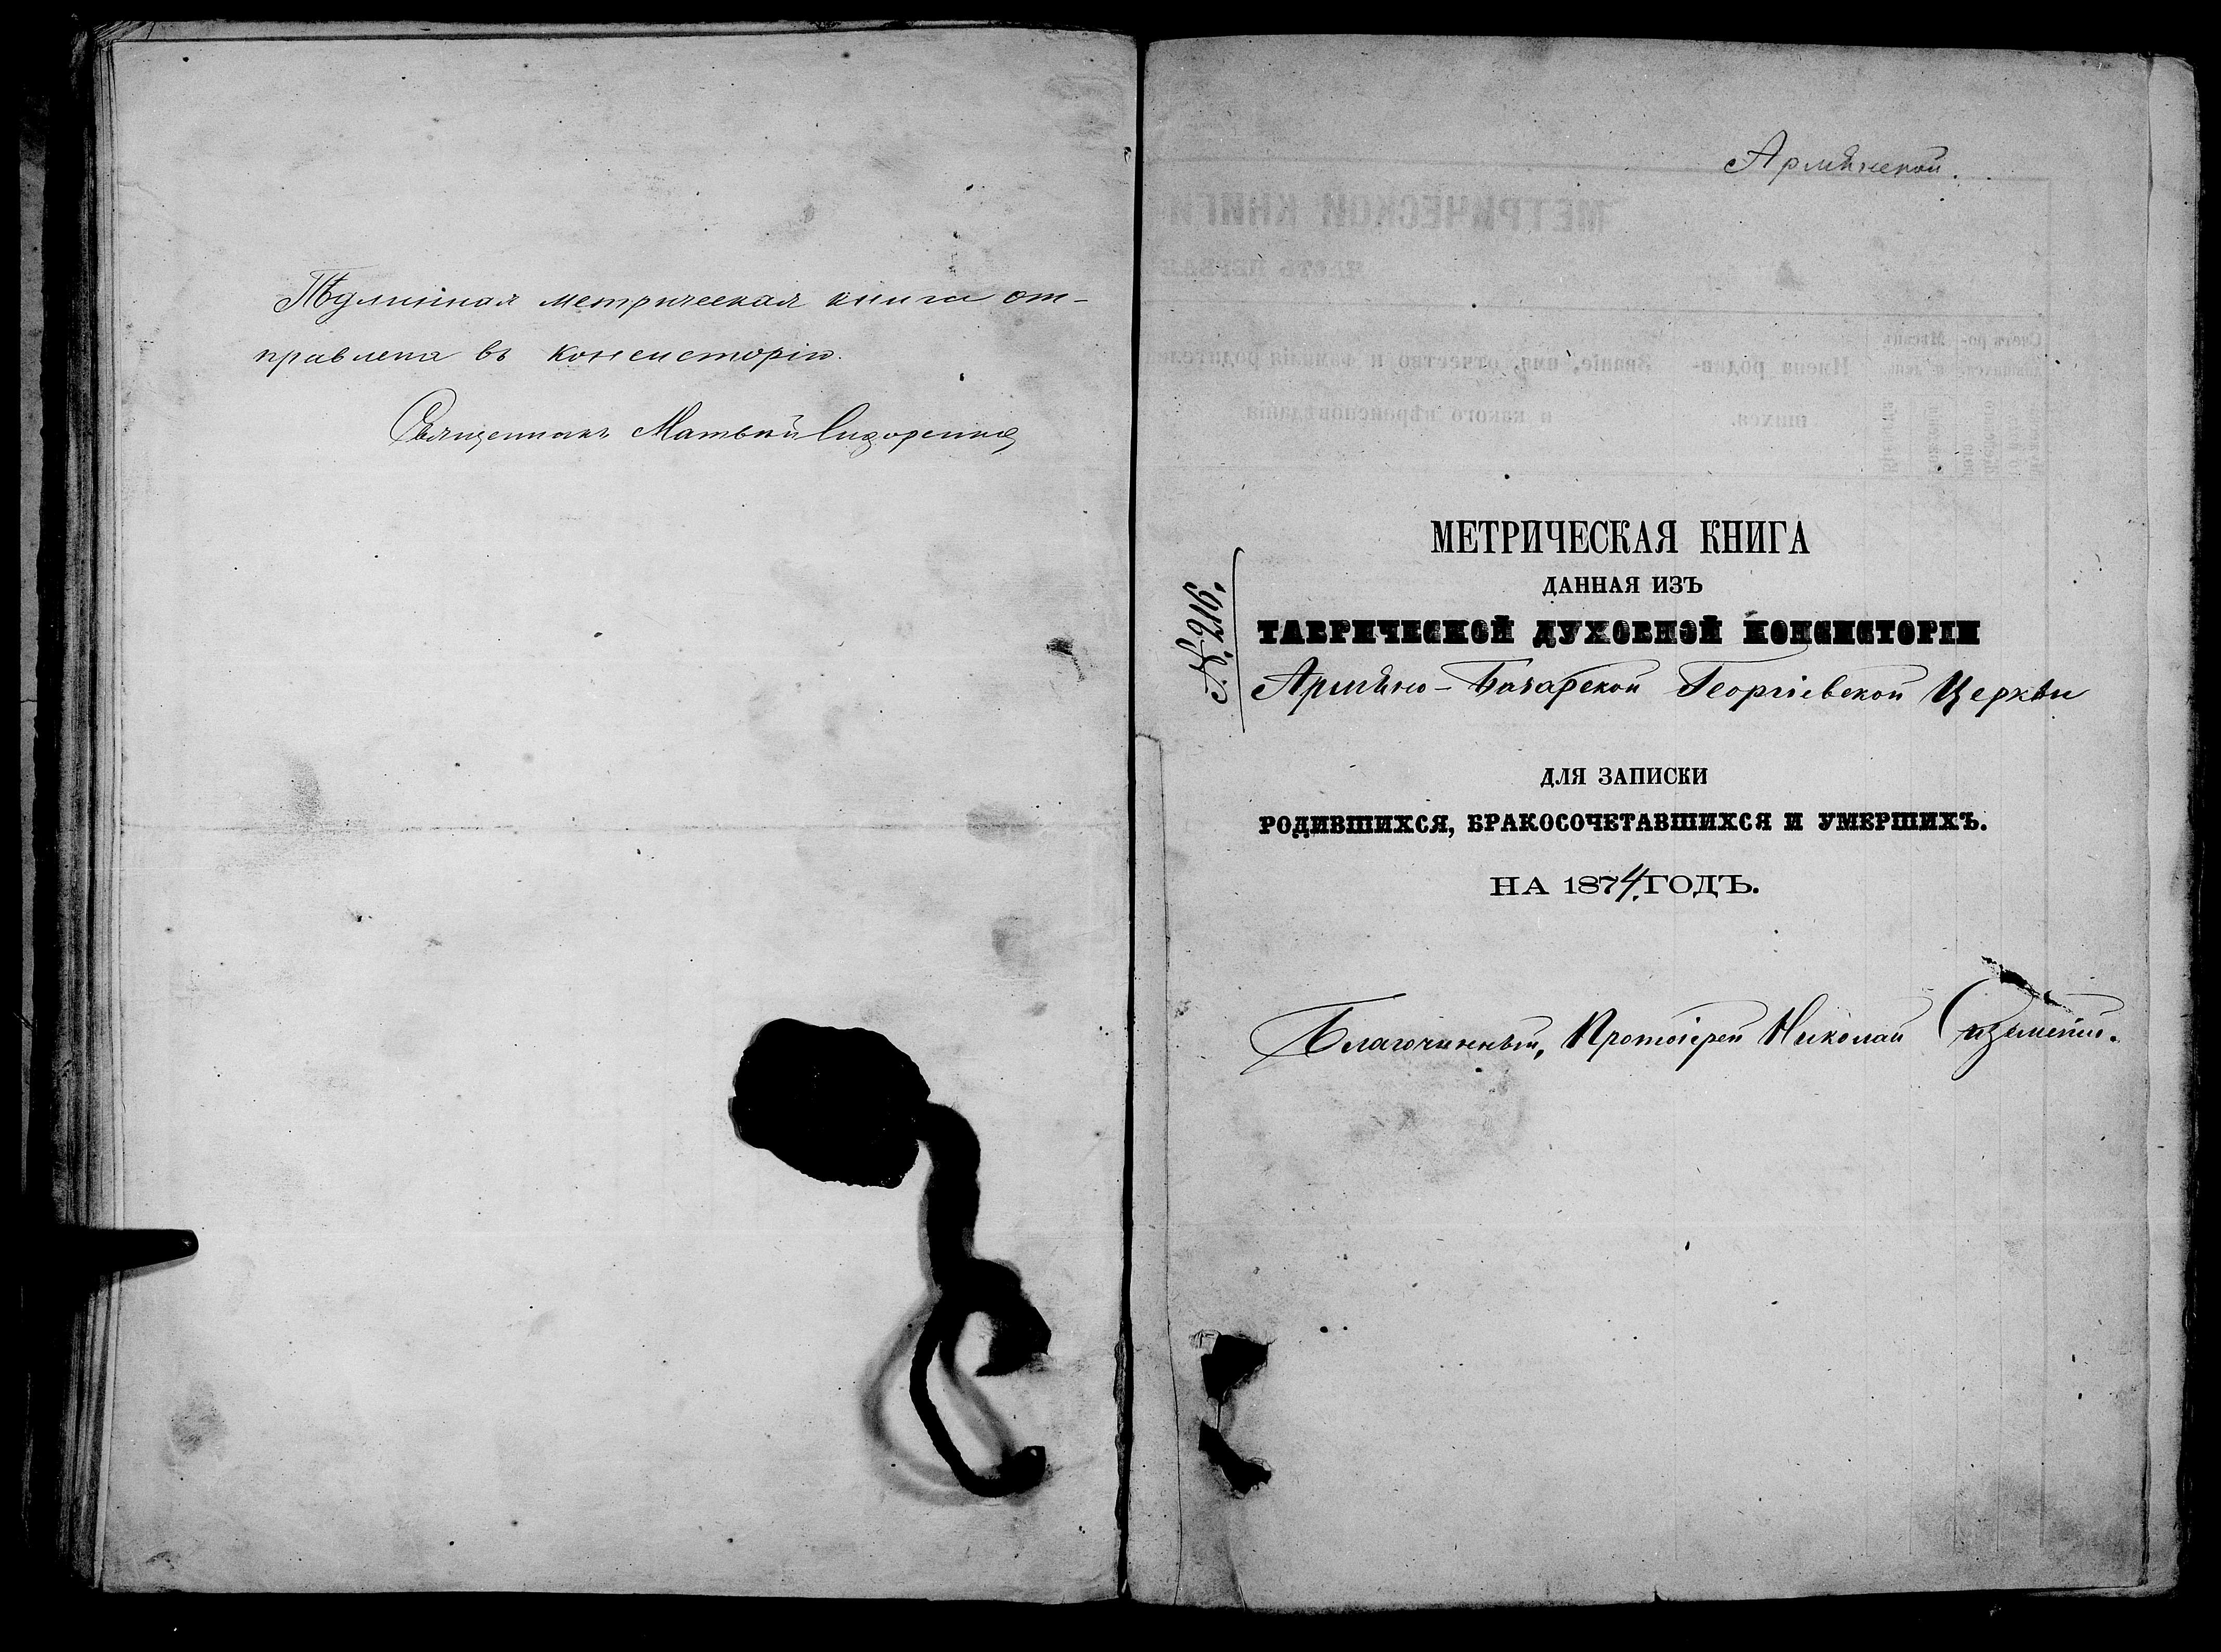 Подлинная метрическая книга от-
правлена въ консисторію.
Священникъ Матвѣй Сидоренко
Армянской.
МЕТРИЧЕСКАЯ КНИГА
ДАННАЯ ИЗЪ
ТАВРИЧЕСКОЙ ДУХОВНОЙ КОНСИСТОРІИ
№ 216.
Армяно-Базарской Георгіевской Церкви
ДЛЯ ЗАПИСКИ
РОДИВШИХСЯ, БРАКОСОЧЕТАВШИХСЯ И УМЕРШИХЪ.
НА 1874 ГОДЪ.
Благочинный, Протоіерей Николай